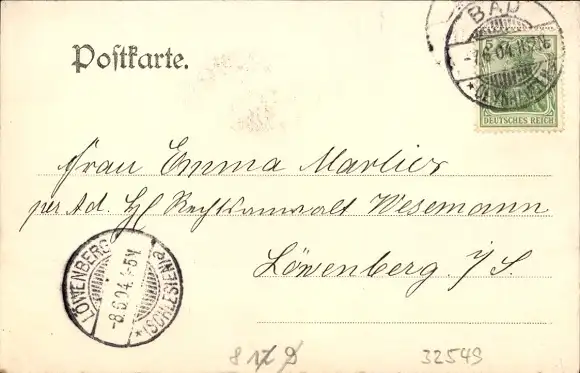 Postkarte.
BAD
-7.6.04.
DEUTSCHES REICH
Frau Emma Marlier
per Ad. H Rechtsanwalt Wesemann
Löwenberg i/S.
LÖWENBERG
-8.6.04.
*(SCHLESIEN)a
32549